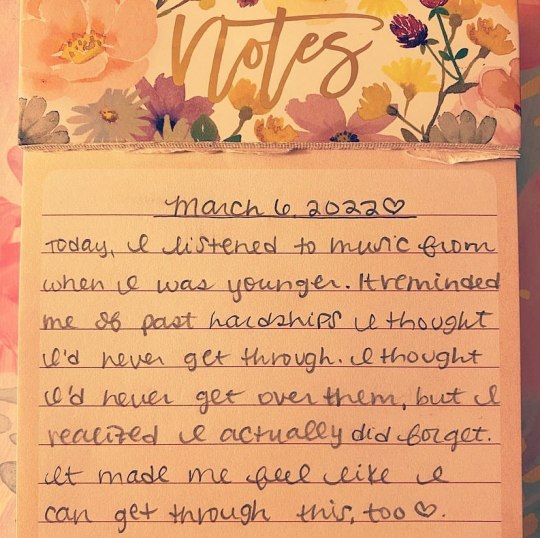 Notes
March 6, 2022♡
Today, I listened to music from
when I was younger. It reminded
me of past hardships I thought
I'd never get through. I thought
I'd never get over them, but I
realized I actually did forget.
It made me feel like I
can get through this, too ♡.